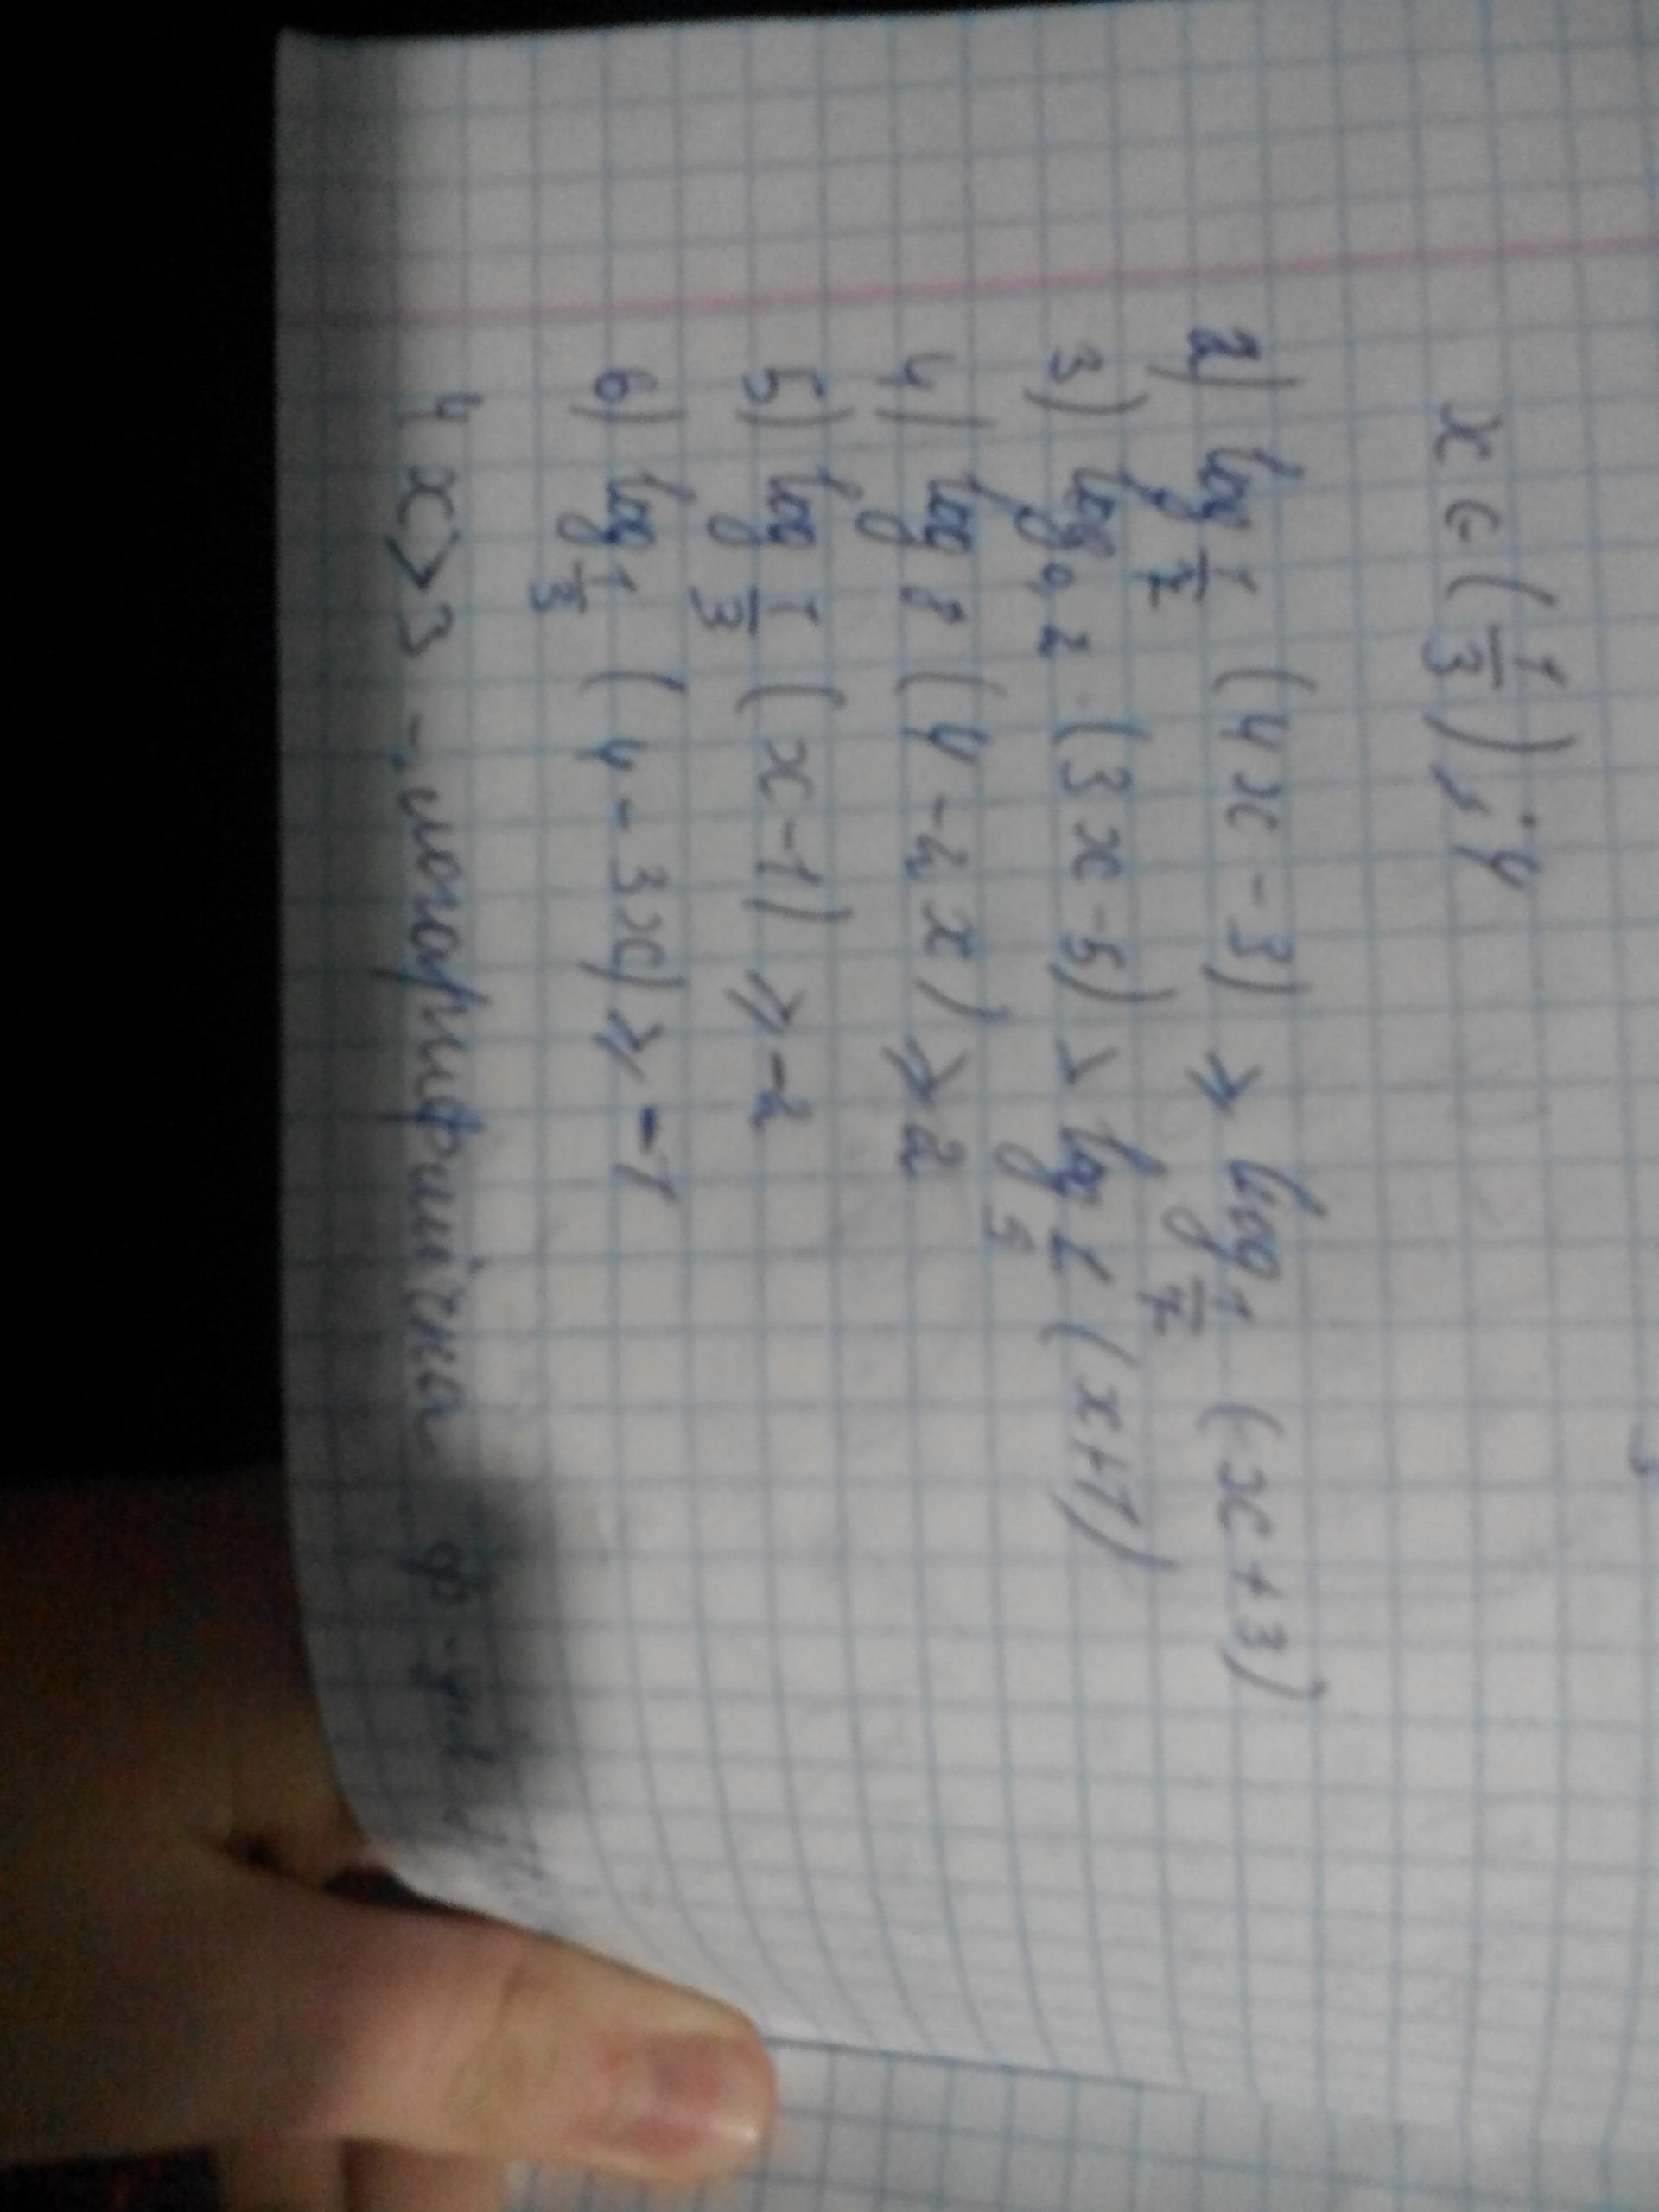 x ∈ (1/3); 4
2) log 1/7 (4x - 3) ⩾ log 1/7 (x + 3)
3) log 0,2 (3x - 5) > log 1/5 (x+1)
4) log 8 (4 - 2x) ⩾ 2
5) log 1/3 (x - 1) ⩾ -2
6) log 1/3 (4 - 3x) ⩾ -1
4 x > 3 - логарифмічна ф-ція